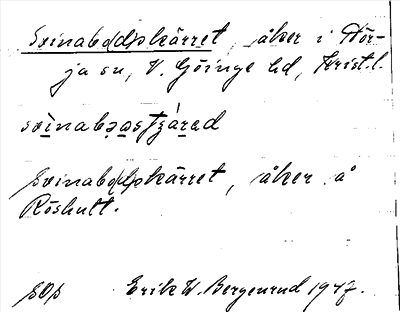 Svinabo(d)skärret, åker i Hör-
ja sn, V. Göinge hd, Krist. l.
Svinabo(d)skärret, åker å
Röshult.
SOS Erik W. Bergenrud 1947.